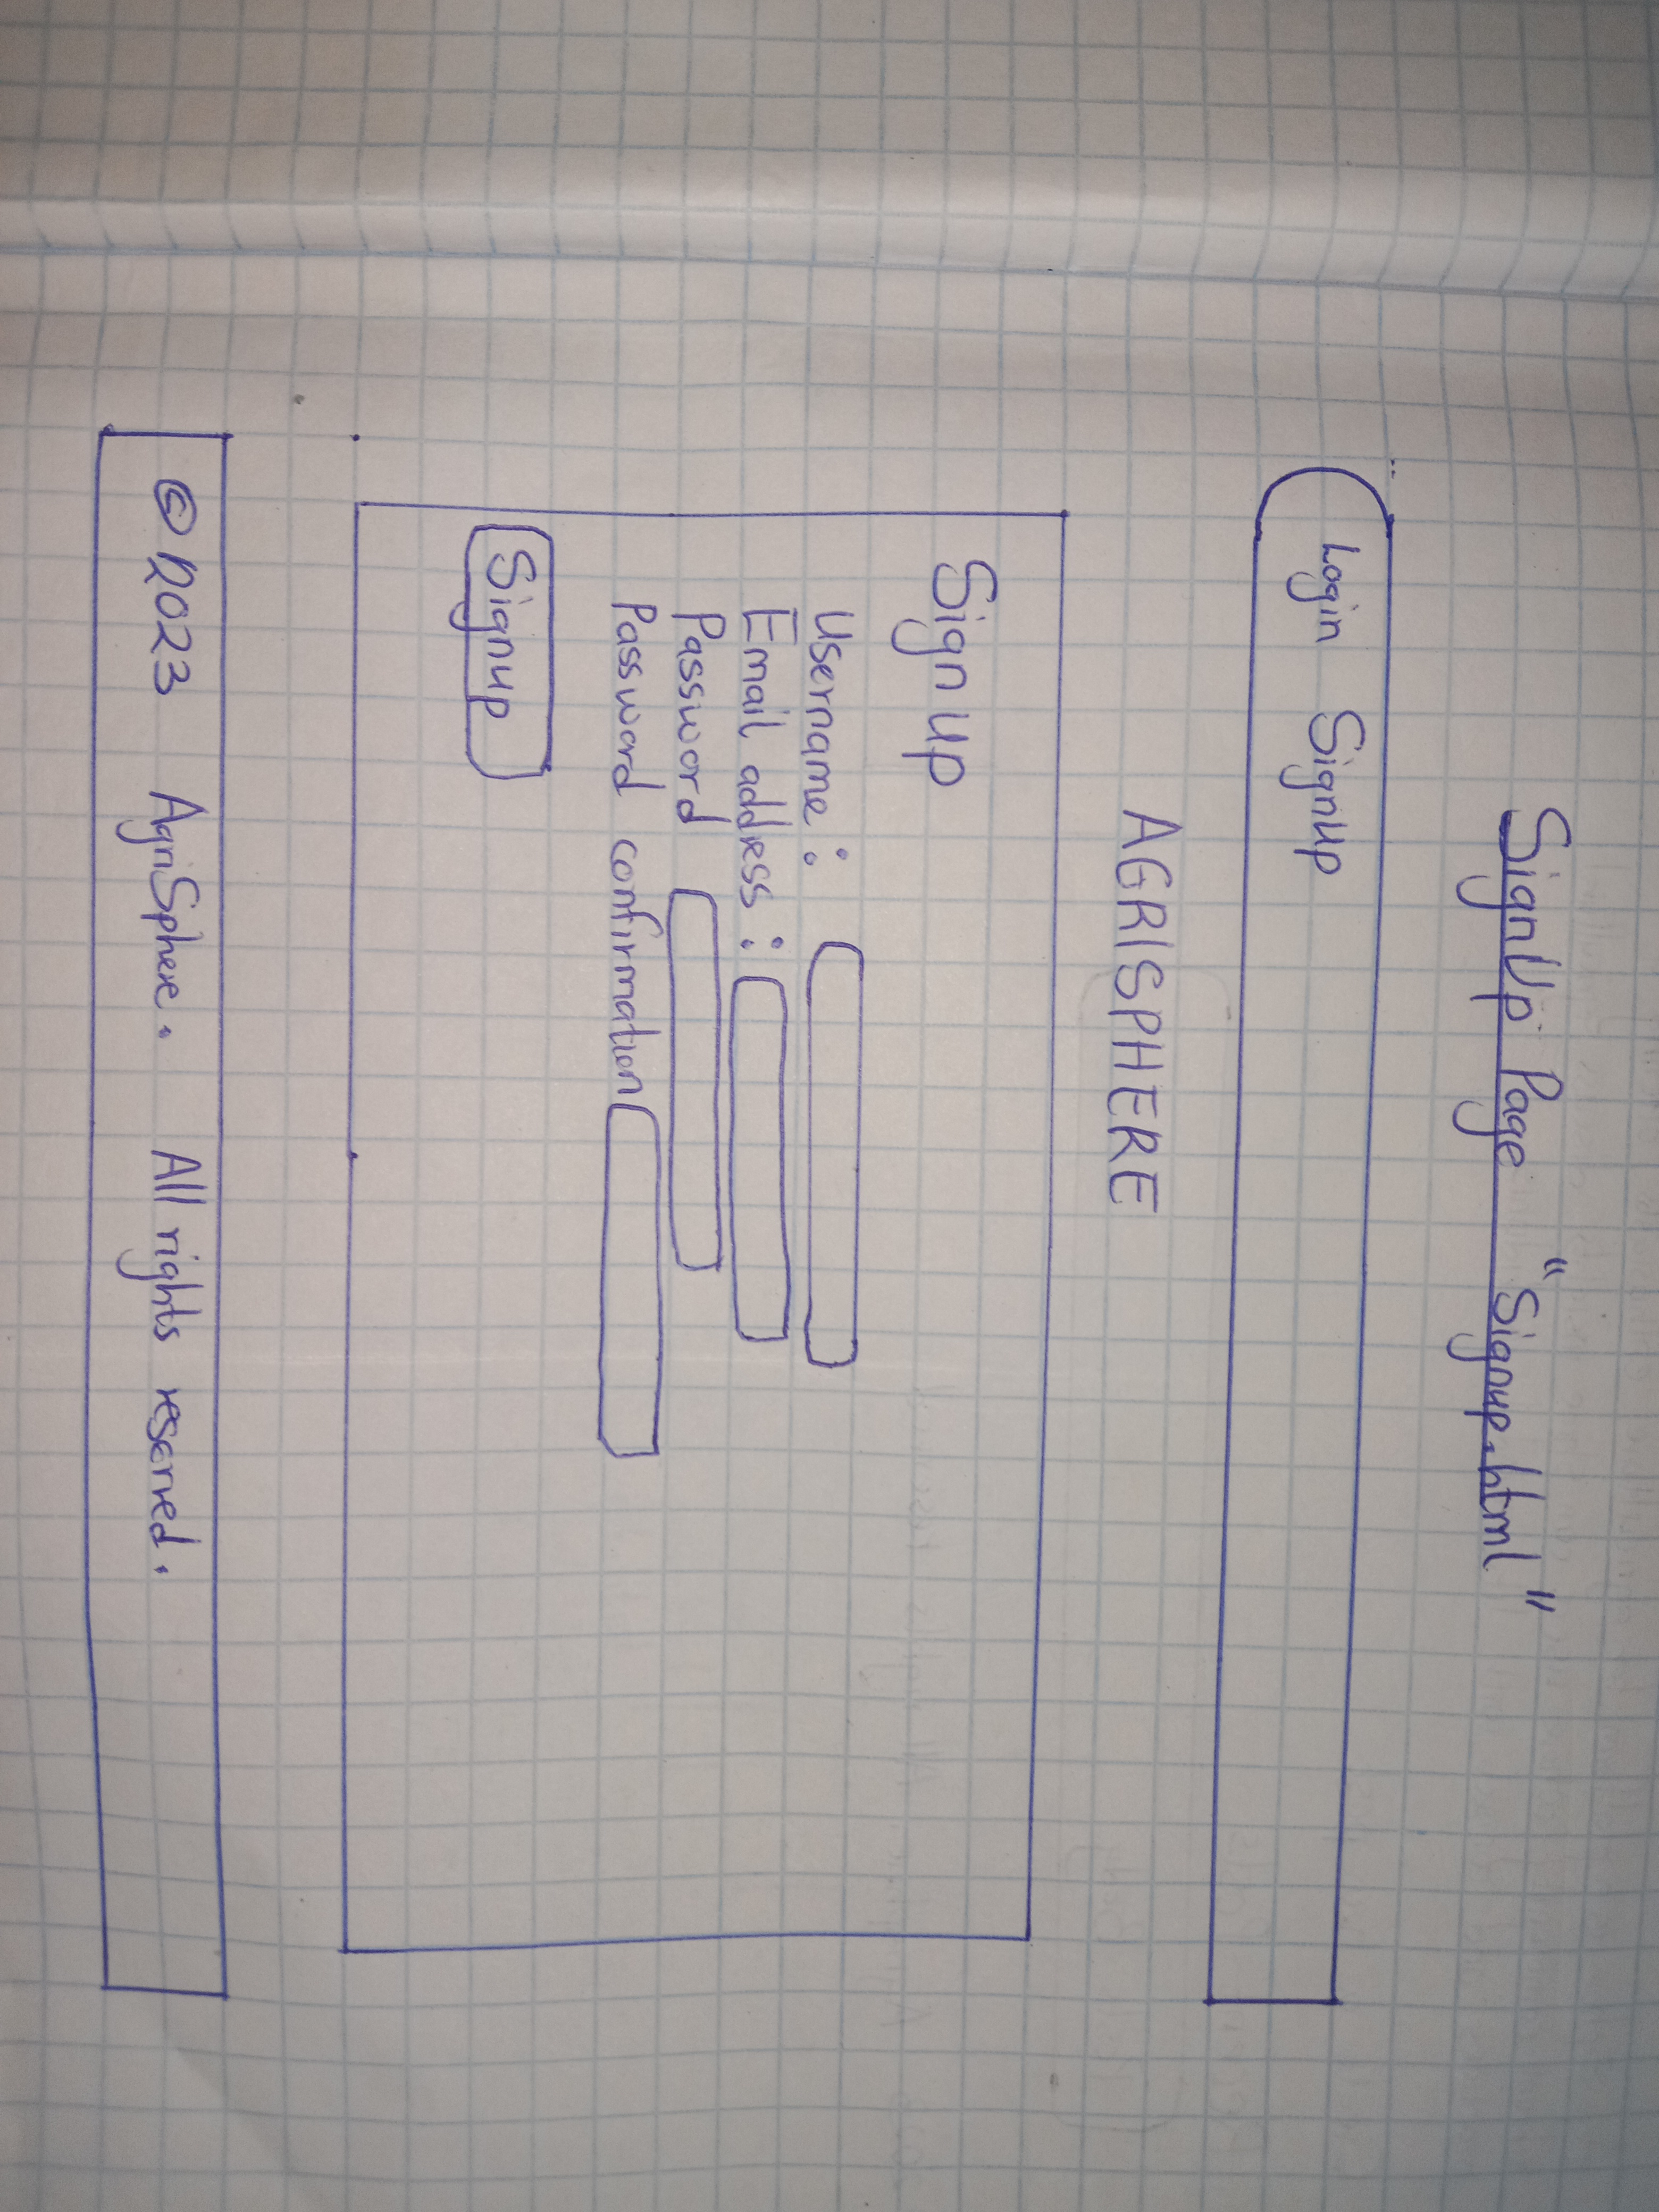 SignUp Page "Signup.html"
Login Signup
AGRISPHERE
Sign up
Username :
Email address :
Password
Password confirmation
Signup
© 2023 AgriSphere. All rights reserved.